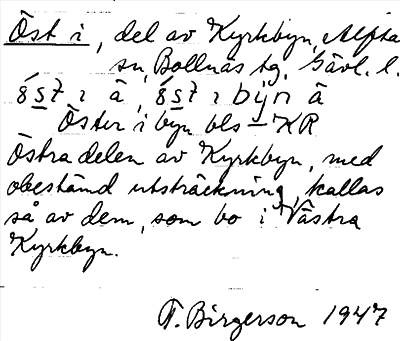 Öst i, del av Kyrkbyn, Alfta
sn, Bollnäs tg. Gävl. l.
öst ı â, öst ı bijn â
Öster i byn bls – KR
Östra delen av Kyrkbyn, med
obestämd utsträckning, kallas
så av dem, som bo i Västra
Kyrkbyn.
F. Birgerson 1947